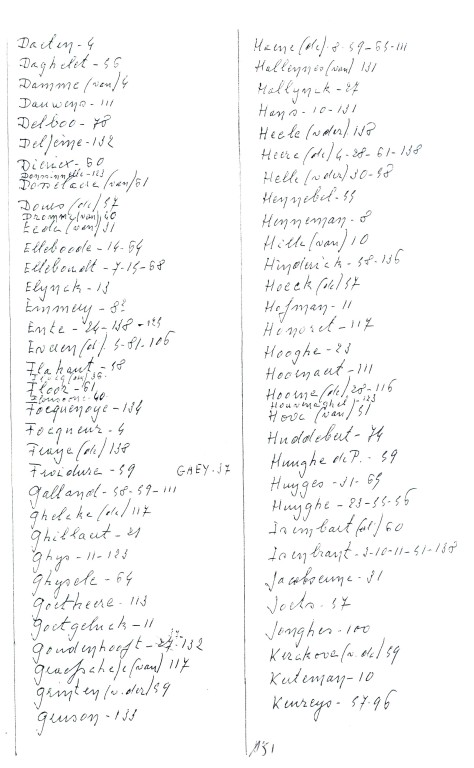 Daelen - 4
Daghelet - 56
Damme (van) 4
Dauwens - 111
Delboo - 78
Deljeine - 132
Dierick - 60
Donselaere (van) 61
Doues (de) 57
Dromme (van) 40
Eecke (van) 31
Elleboode - 14-64
Elleboudt - 7-15-68
Elynck - 13
Emmery - 82
Ente - 24-138-123
Flahaut - 58
Floor - 61
Focquenoye - 134
Focqueur - 4
Fraye (de) 138
Froidure - 59 GAEY-37
Galland - 58-59-111
Ghelcke (de) 117
Ghillaut - 21
Ghys - 11-123
Ghysele - 64
Goetheere - 113
Goetgeluck - 11
Goudenhooft - 132
Graefschepe (van) 117
Grinten (v. der) 59
Geuson - 133
Haene (de) - 8-59-65-111
Hallennes (van) 131
Hallynck - 27
Hans - 10-131
Heele (v der) 138
Heere (de) 4-28-61-138
Helle (v der) 30-58
Hennebel - 55
Henneman - 8
Hille (van) 10
Hinderick - 58-136
Hoeck (de) 57
Hofman - 11
Honoret - 117
Hooghe - 23
Hoornaut - 111
Hoorne (de) 28-116
Hove (van) 51
Huddebert - 74
Hunghe de P. - 59
Huyges - 31-65
Huyghe - 23-55-56
Isenbaert (d') 60
Isenbrant - 3-10-11-51-138
Jacobsenne - 31
Joets - 57
Jonghes - 100
Kerckove (v. de) 59
Keteman - 10
Keureys - 57-96